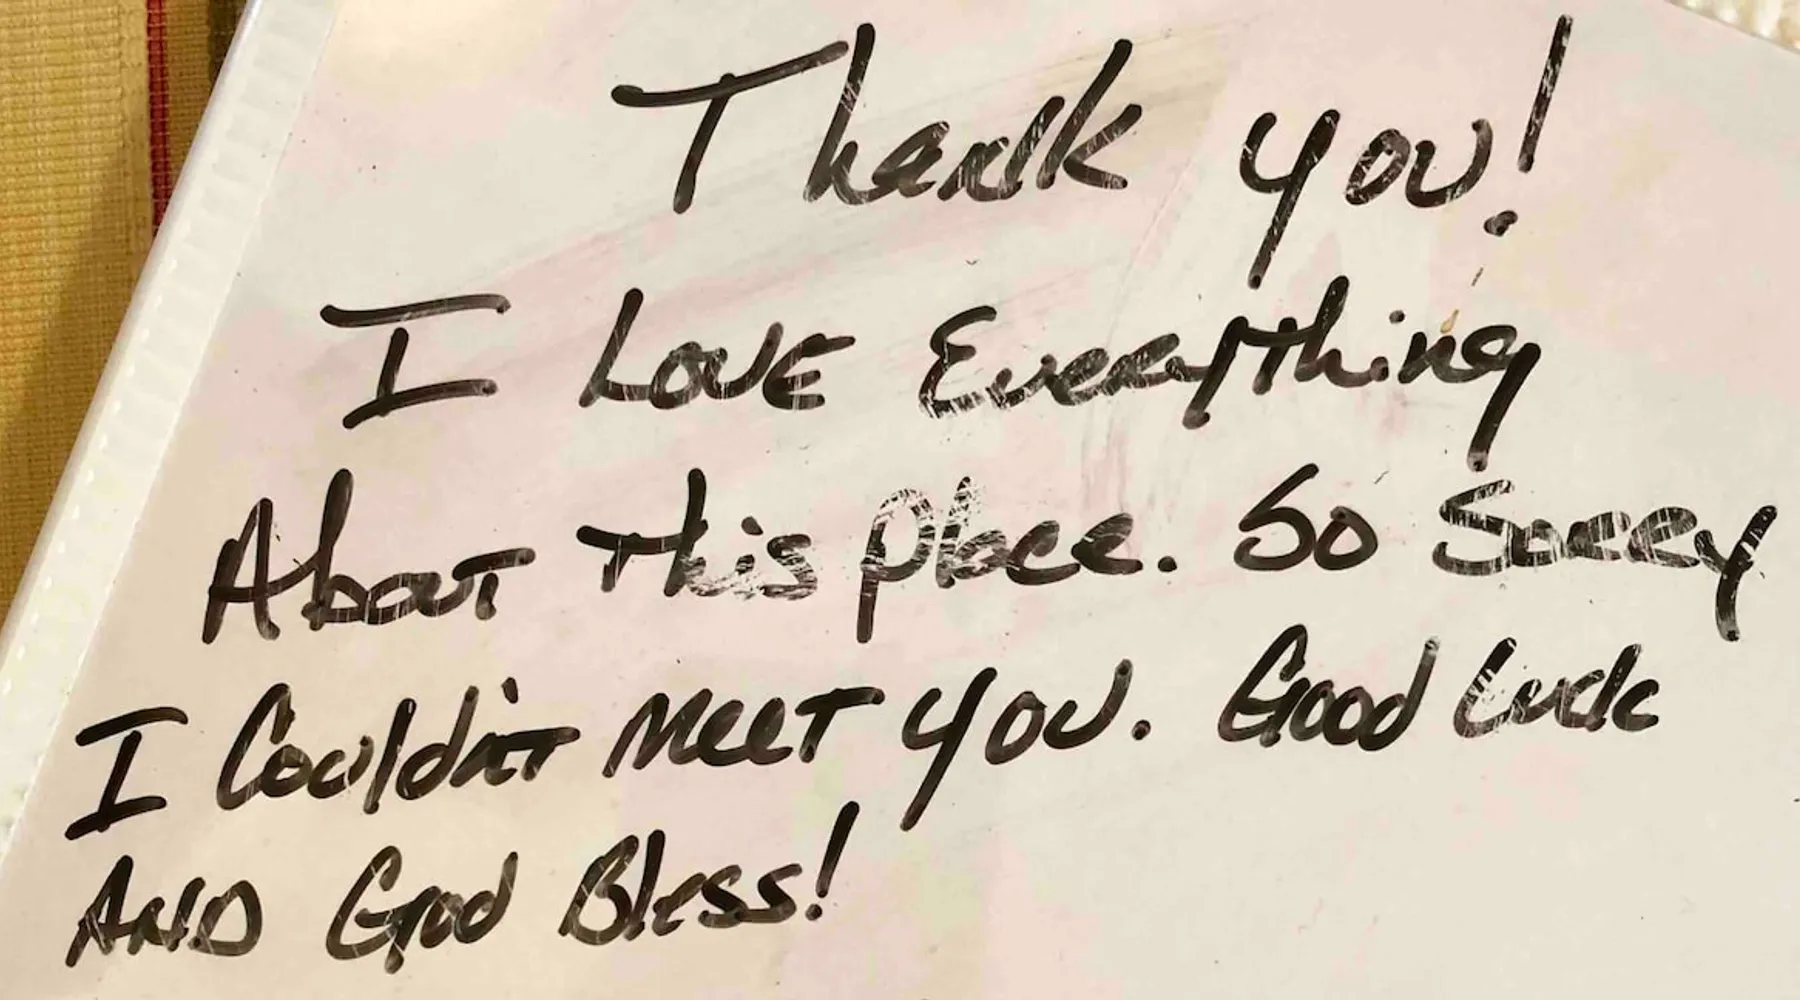 Thank you!
I LOVE Everything
About this place. So Sorry
I Couldn't MeeT you. Good Luck
AND God Bless!